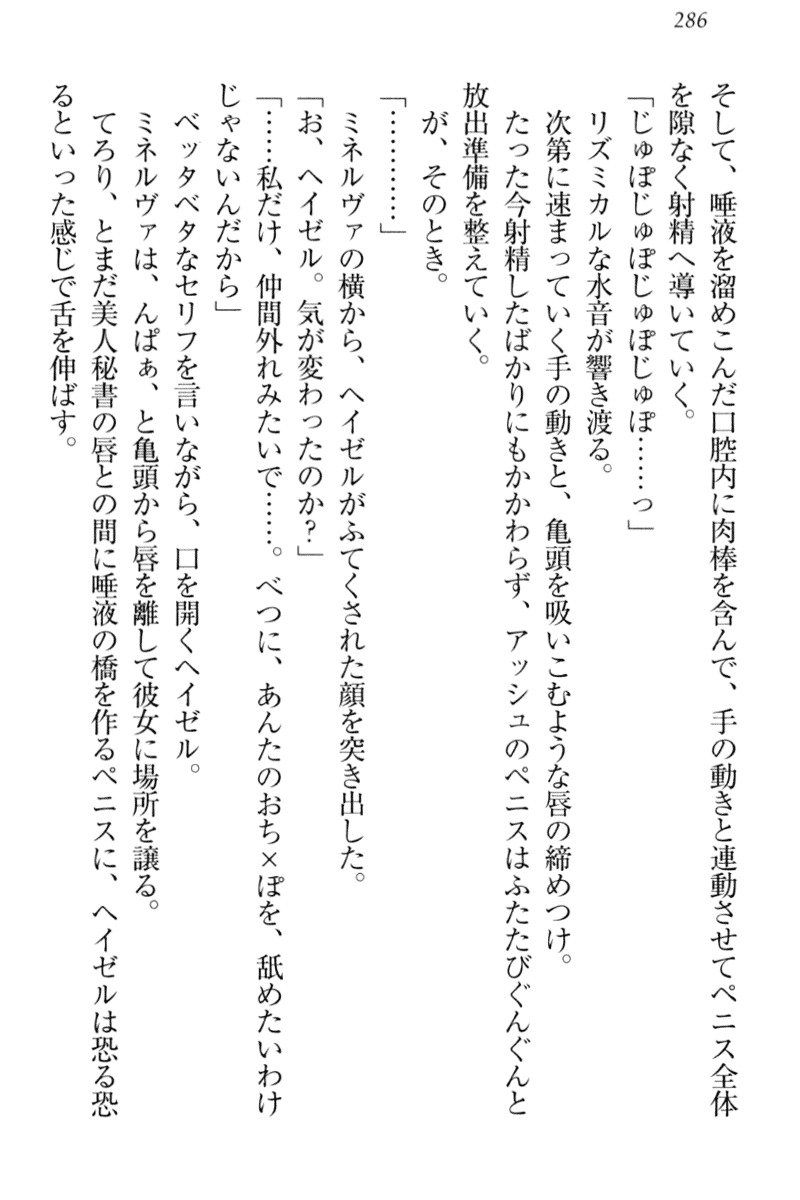 286
そして、唾液を溜めこんだ口腔内に肉棒を含んで、手の動きと連動させてペニス全体
を隙なく射精へ導いていく。
「じゅぽじゅぽじゅぽじゅぽ……っ」
リズミカルな水音が響き渡る。
次第に速まっていく手の動きと、亀頭を吸いこむような唇の締めつけ。
たった今射精したばかりにもかかわらず、アッシュのペニスはふたたびぐんぐんと
放出準備を整えていく。
が、そのとき。
「…………」
ミネルヴァの横から、ヘイゼルがふてくされた顔を突き出した。
「お、ヘイゼル。気が変わったのか?」
「……私だけ、仲間外れみたいで……。べつに、あんたのおち×ぽを、舐めたいわけ
じゃないんだから」
ベッタベタなセリフを言いながら、口を開くヘイゼル。
ミネルヴァは、んぱぁ、と亀頭から唇を離して彼女に場所を譲る。
てろり、とまだ美人秘書の唇との間に唾液の橋を作るペニスに、ヘイゼルは恐る恐
るといった感じで舌を伸ばす。